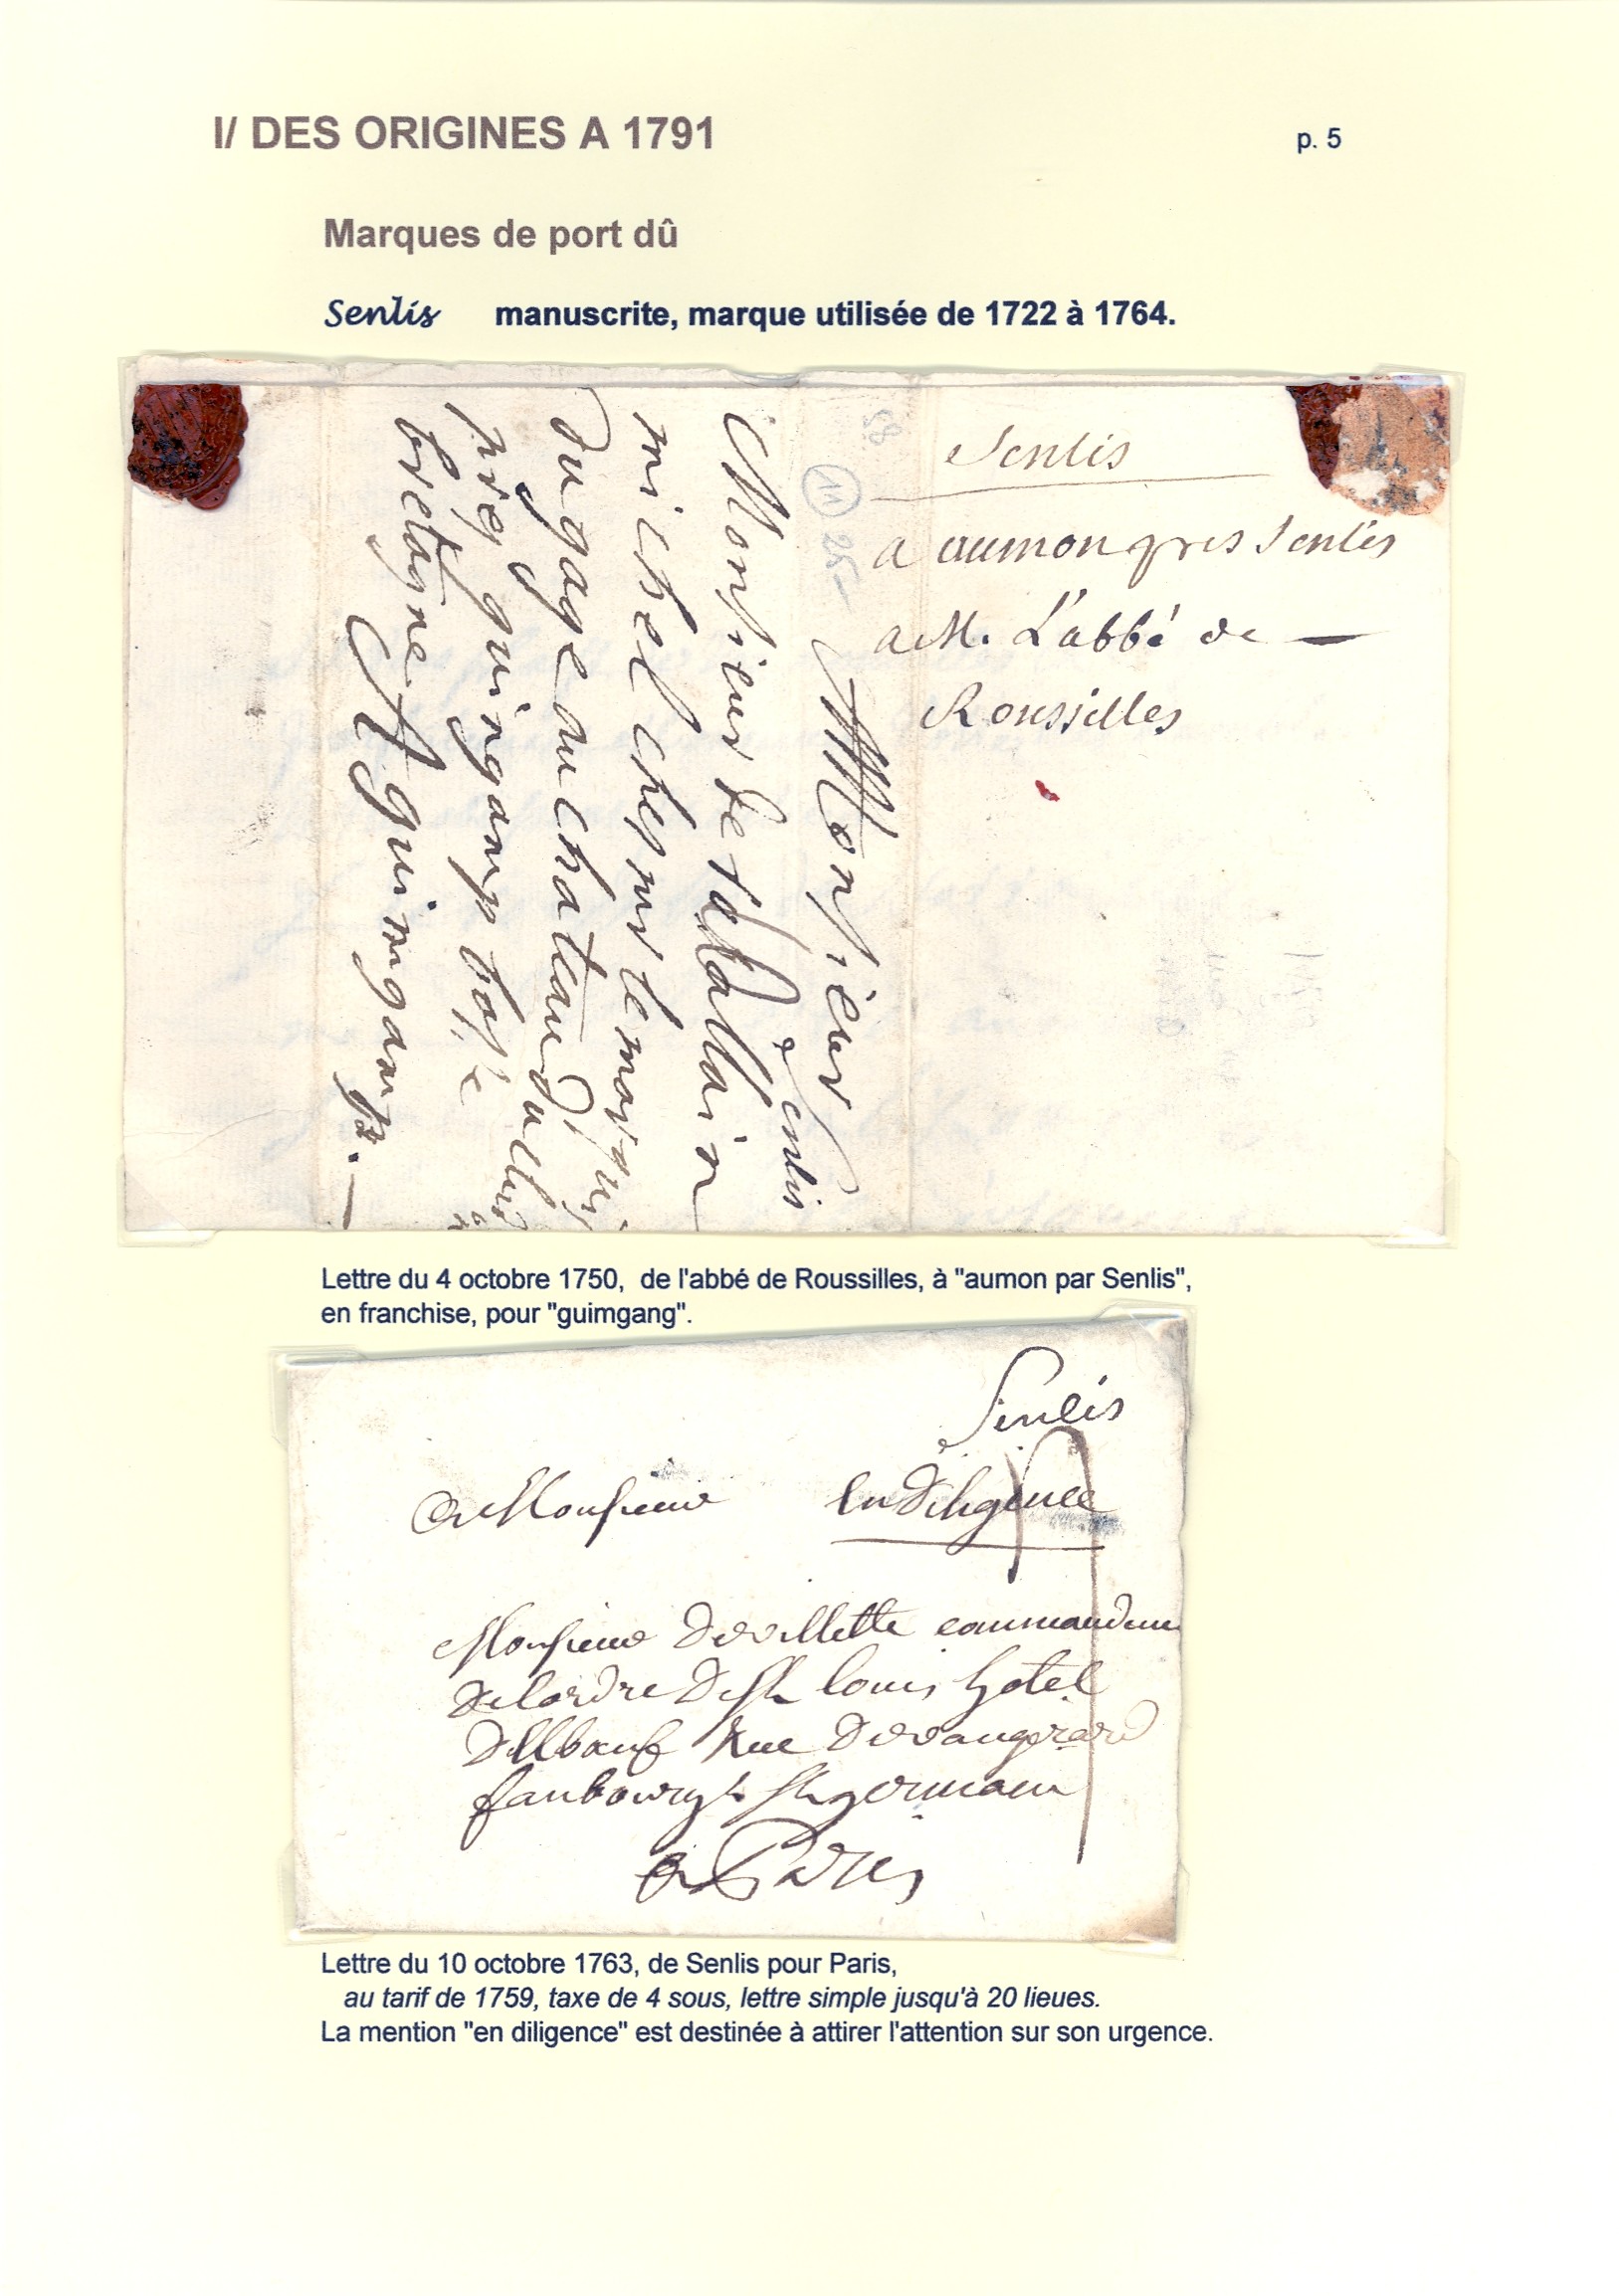 I/ DES ORIGINES A 1791
p. 5
Marques de port dû
Senlis manuscrite, marque utilisée de 1722 à 1764.
Senlis
a aumon pres Senlis
a M. L'abbé de —
Roussilles
28
11 25-
A Monsieur
a Senlis
Monsieur de
michel chez
du gage au chateau
prez guingamp basse
bretagne A guimgamp. —
Lettre du 4 octobre 1750, de l'abbé de Roussilles, à "aumon par Senlis",
en franchise, pour "guimgang".
Senlis
a Monsieur en diligence
Monsieur de villette commandeur
de lordre de St louis hotel
d'Elboeuf Rue de vaugirard
faubourgt St germain
a Paris
Lettre du 10 octobre 1763, de Senlis pour Paris,
au tarif de 1759, taxe de 4 sous, lettre simple jusqu'à 20 lieues.
La mention "en diligence" est destinée à attirer l'attention sur son urgence.